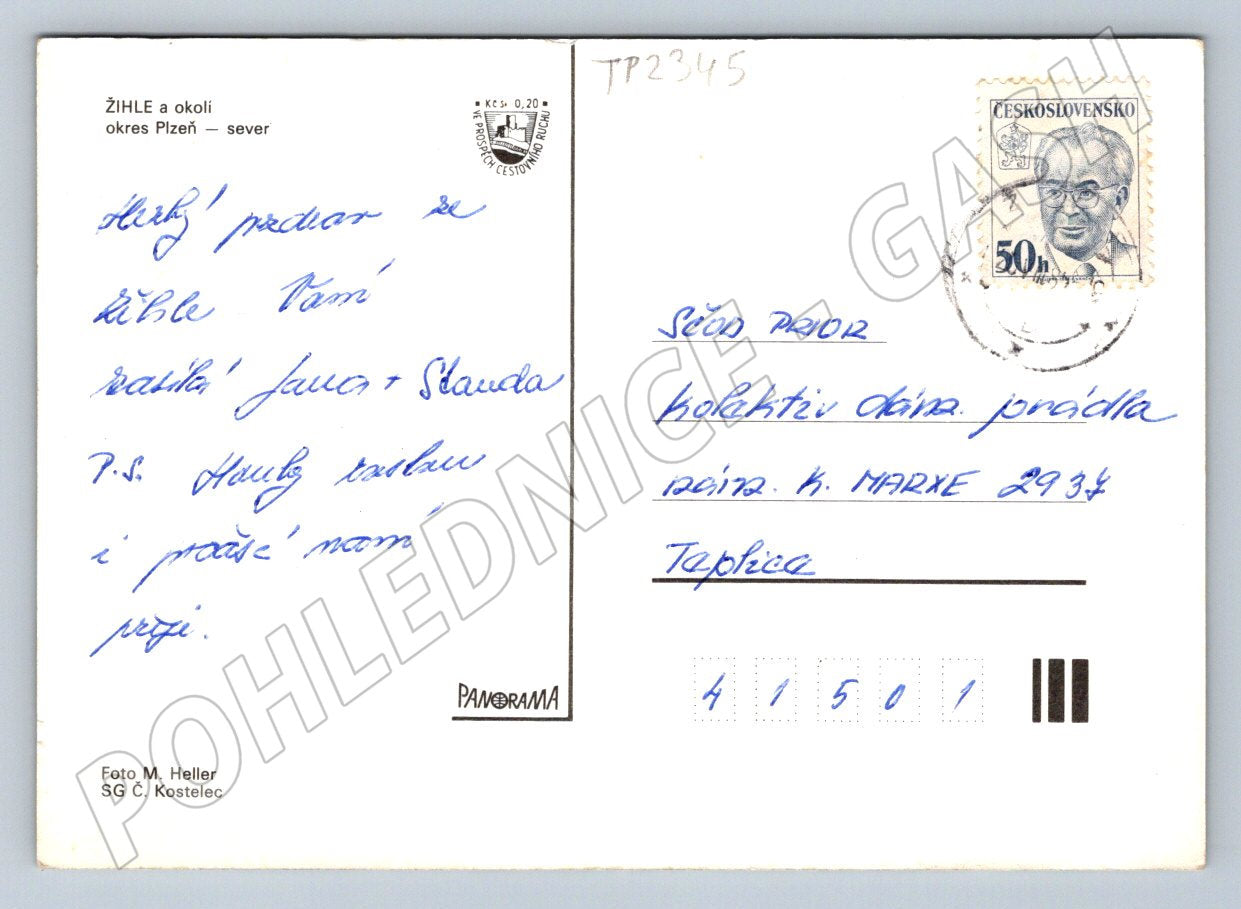 ŽIHLE a okolí
okres Plzeň — sever
Kčs 0,20
VE PROSPĚCH CESTOVNÍHO RUCHU
Hezký pozdrav ze
Žihle Vám
zasílá Jana + Standa
P.S. Houby rostou
i počasí nám
přeje.
PANORAMA
Foto M. Heller
SG Č. Kostelec
TP2345
ČESKOSLOVENSKO
50h
SČOD PRIOR
Kolektiv dám. prádla
nám. K. MARXE 2937
Teplice
41501
POHLEDNICE - GASH